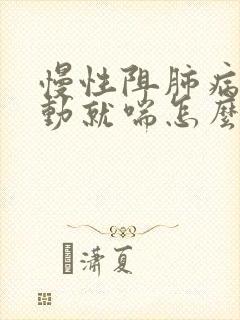 慢性阻肺病
動就喘怎麼
瀟夏